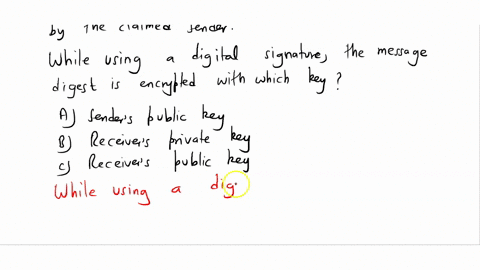 by the claimed sender.
While using a digital signature, the message
digest is encrypted with which key?
A) Sender's public key
B) Receiver's private key
C) Receiver's public key
While using a dig